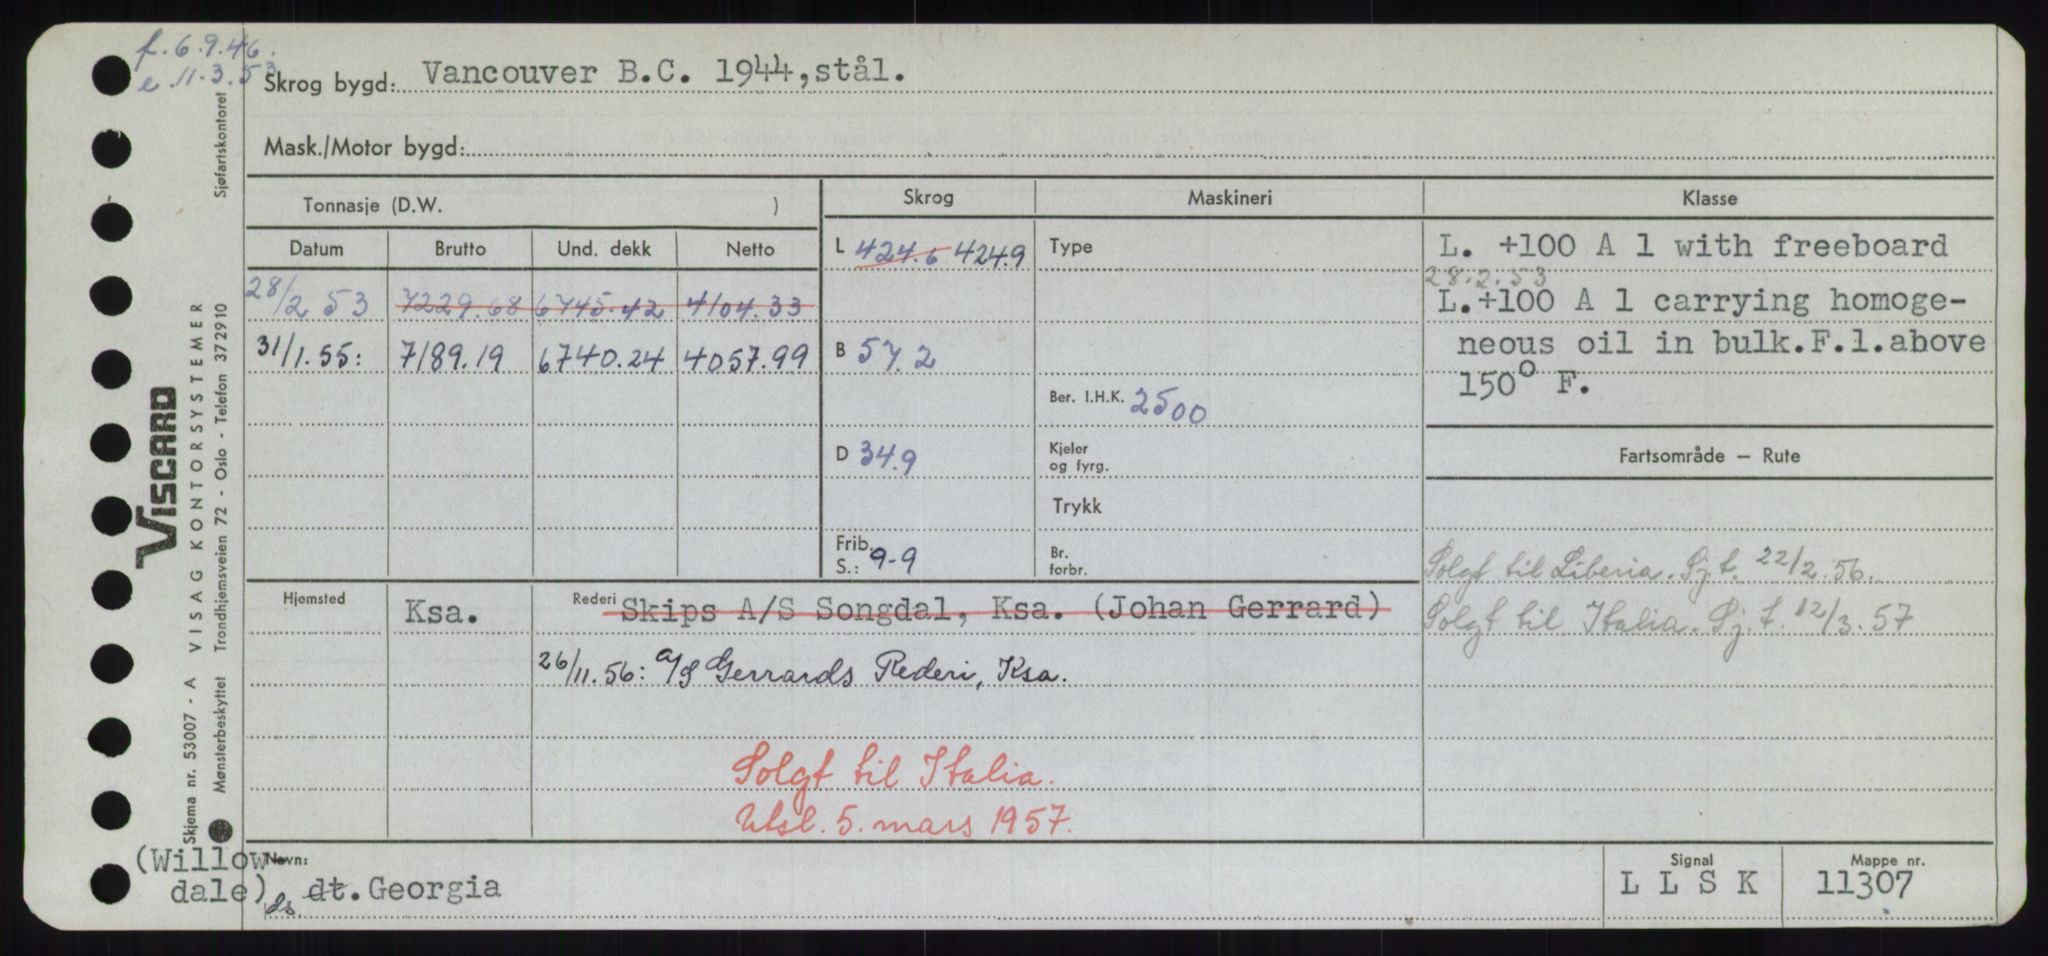 f. 6.9.46.
e. 11.3.53
Skrog bygd: Vancouver B.C. 1944, stål.
Mask./Motor bygd:
Tonnasje (D.W. )
Skrog
Maskineri
Klasse
Datum Brutto Und. dekk Netto
28/2 53 7229.68 6745.42 4104.33
31/1.55: 7189.19 6740.24 4057.99
L 424.6 424.9
B 57.2
D 34.9
Frib.
S.: 9-9
Type
Ber. I.H.K. 2500
Kjeler
og fyrg.
Trykk
Br.
forbr.
L. +100 A 1 with freeboard
28.2.53
L.+100 A 1 carrying homoge-
neous oil in bulk.F.l.above
150° F.
Fartsområde — Rute
Solgt til Liberia. Sj.t. 22/2.56.
Solgt til Italia. Sj.t. 12/3.57
Hjemsted Ksa.
Rederi Skips A/S Songdal, Ksa. (Johan Gerrard)
26/11.56: A/S Gerrards Rederi, Ksa.
Solgt til Italia.
Utsl. 5. mars 1957.
(Willow-
dale)
Navn:
ds dt. Georgia
Signal
L L S K
Mappe nr.
11307
Skjema nr. 53007 - A VISAG KONTORSYSTEMER
VISCARD
Mønsterbeskyttet Trondhjemsveien 72 - Oslo - Telefon 372910 Sjøfartskontoret